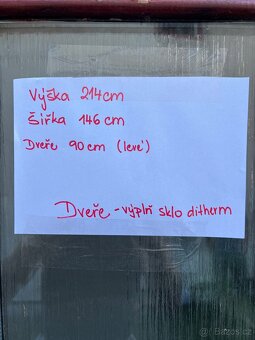 Výška 214cm
Šířka 146 cm
Dveře 90 cm (levé)
Dveře - výplň sklo ditherm
Bazos.cz